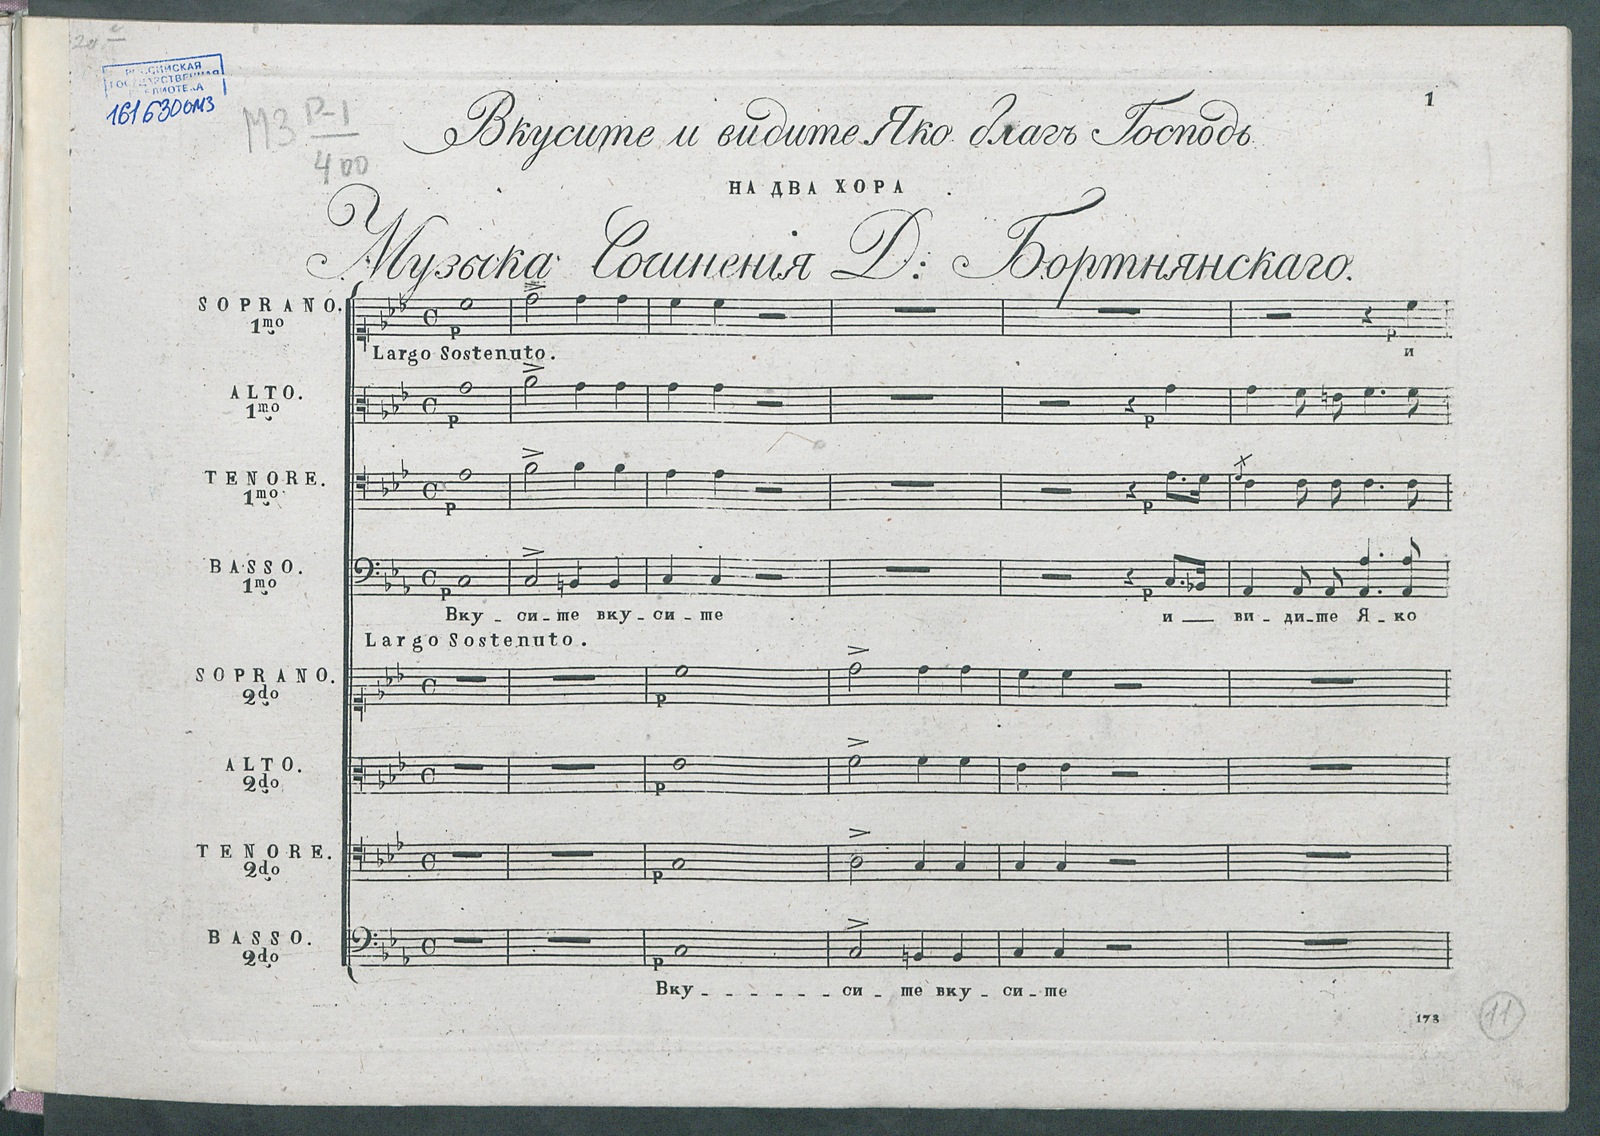 РОССИЙСКАЯ
ГОСУДАРСТВЕННАЯ
БИБЛИОТЕКА
161630 ОМЗ
МЗ Р-1
400
1
Вкусите и видите Яко благъ Господь
НА ДВА ХОРА
Музыка Сочиненія Д: Бортнянскаго.
SOPRANO. 1mo
P
P
Largo Sostenuto.
и
ALTO. 1mo
P
P
TENORE. 1mo
P
P
BASSO. 1mo
P
P
Вку - си - те вку - си - те и — ви - ди - те Я - ко
Largo Sostenuto.
SOPRANO. 2do
P
ALTO. 2do
P
TENORE. 2do
P
BASSO. 2do
P
Вку - - - - - - си - те вку - си - те
173
11